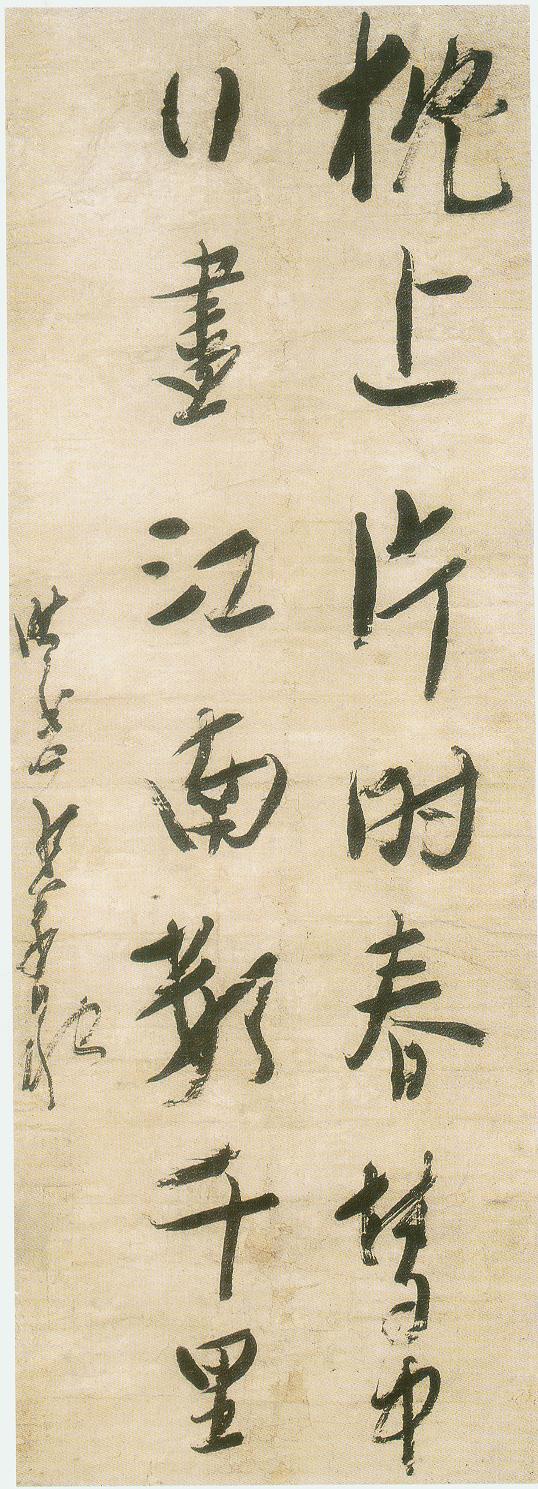 枕上片時春夢中
行盡江南數千里